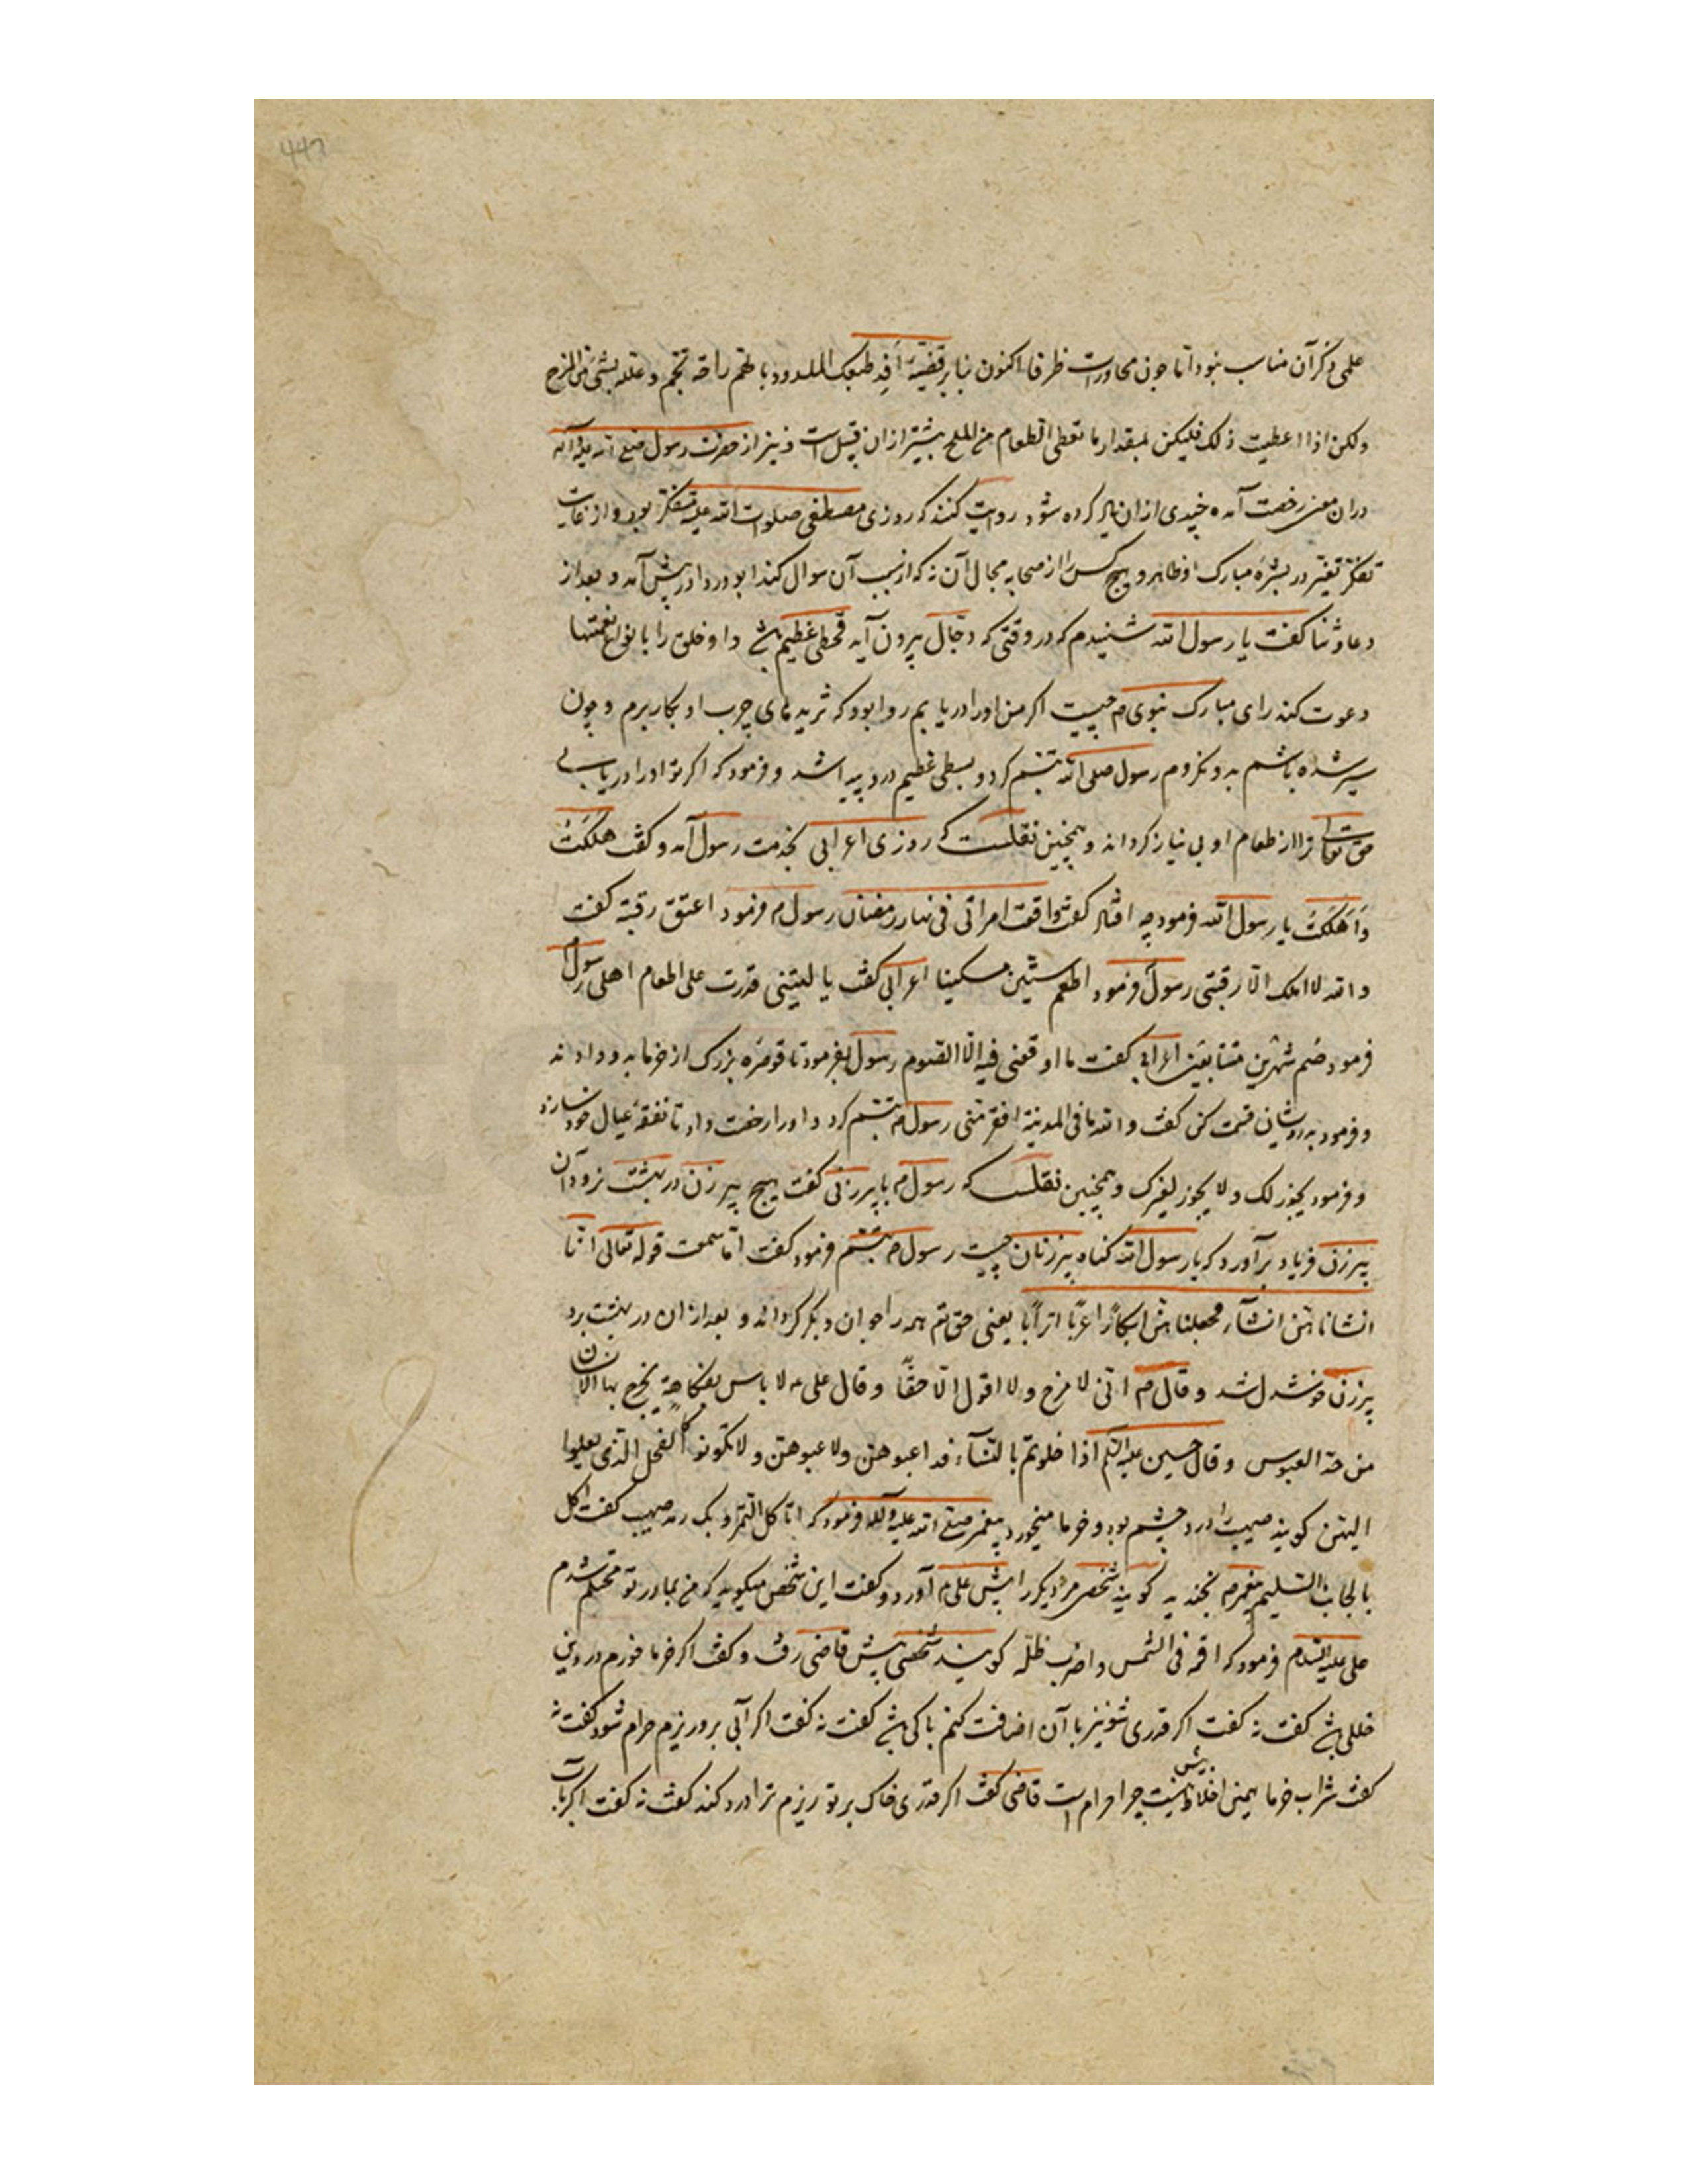 علمی ذکر آن مناسب نبود اما چون محاورات ظرفا اکنون بنابر قضیه افد طبعک المکدود بالهم راحة تجم وعلله بشئ من المزح
ولکن اذا اعطیت ذلک فلیکن بمقدار ما تعطی الطعام من الملح بیشتر ازان قبیل است ونیز از حضرت رسول صلی الله علیه وآله
دران معنی رخصت آمده چیزی ازان یاد کرده شود روایت کنند که روزی مصطفی صلوات الله علیه متفکر بود و از غایت
تفکر تغیر در بشره مبارک او ظاهر و هیچ کس را از صحابه مجال آن نه که از سبب آن سوال کند ابودردا در پیش آمد و بعد از
دعا و ثنا گفت یا رسول الله شنیدم که در وقتی که دجال بیرون آید قحطی عظیم باشد و او خلق را با نواع نعمتها
دعوت کند رای مبارک نبوی م چیست اگر من او را دریابم روا بود که ثریدهای چرب او بکار برم و چون
سیر شده باشم بدو نکروم رسول صلی الله تبسم کرد و بسطی عظیم درو پیدا شد و فرمود که اگر تو او را دریابی
حق تعالی ترا از طعام او بی نیاز گرداند و همچنین نقلست که روزی اعرابی بخدمت رسول آمد و گفت هلکت
واهلکت یا رسول الله فرمود چه افتاد گفت واقعت امراتی فی نهار رمضان رسول م فرمود اعتق رقبة گفت
والله لا املک الا رقبتی رسول فرمود اطعم ستین مسکینا اعرابی گفت یا لیتنی قدرت علی اطعام اهلی رسول
فرمود صم شهرین متتابعین اعرابی گفت ما اوقعنی فیه الا الصوم رسول بفرمود تا قوصره بزرگ از خرما بدو دادند
و فرمود به درویشان قسمت کن گفت والله ما فی المدینة افقر منی رسول م تبسم کرد و او را رخصت داد تا نفقه عیال خود سازد
و فرمود یجوز لک ولا یجوز لغیرک و همچنین نقلست که رسول م با پیرزنی گفت هیچ پیر زن در بهشت نرود آن
پیرزن فریاد برآورد که یا رسول الله گناه پیرزنان چیست رسول م تبسم فرمود گفت اما سمعت قوله تعالی انا
انشاناهن انشآء فجعلناهن ابکارا عربا اترابا یعنی حق تع همه را جوان و بکر گرداند و بعد ازان در بهشت برد
پیرزن خوشدل شد و قال م انی لامزح ولا اقول الا حقا و قال علی م لا باس بفکاهة یخرج بها الانسان
من حد العبوس و قال حسین علیه السلام اذا خلوتم بالنسآء فداعبوهن ولاعبوهن ولا تکونوا کالفحل الذی یعلوا
الیهن گویند صهیب را درد چشم بود و خرما میخورد پیغمبر صلی الله علیه وآله فرمود که اتاکل التمر وبک رمد صهیب گفت اکل
بالجانب السلیم پیغمبر م بخندید گویند شخصی مر دیگر را پیش علی م آورد و گفت این شخص میگوید که من بمادر تو محتلم شدم
علی علیه السلام فرمود که اقمه فی الشمس واضرب ظله گویند شخصی پیش قاضی رفت و گفت اگر خرما خورم در دین
خللی باشد گفت نه گفت اگر قدری شونیز با آن اضافت کنم باکی باشد گفت نه گفت اگر آبی برو ریزم حرام شود گفت نه
گفت شراب خرما همین اخلاط بیش نیست چرا حرام است قاضی گفت اگر قدری خاک بر تو ریزم ترا درد کند گفت نه گفت اگر آب